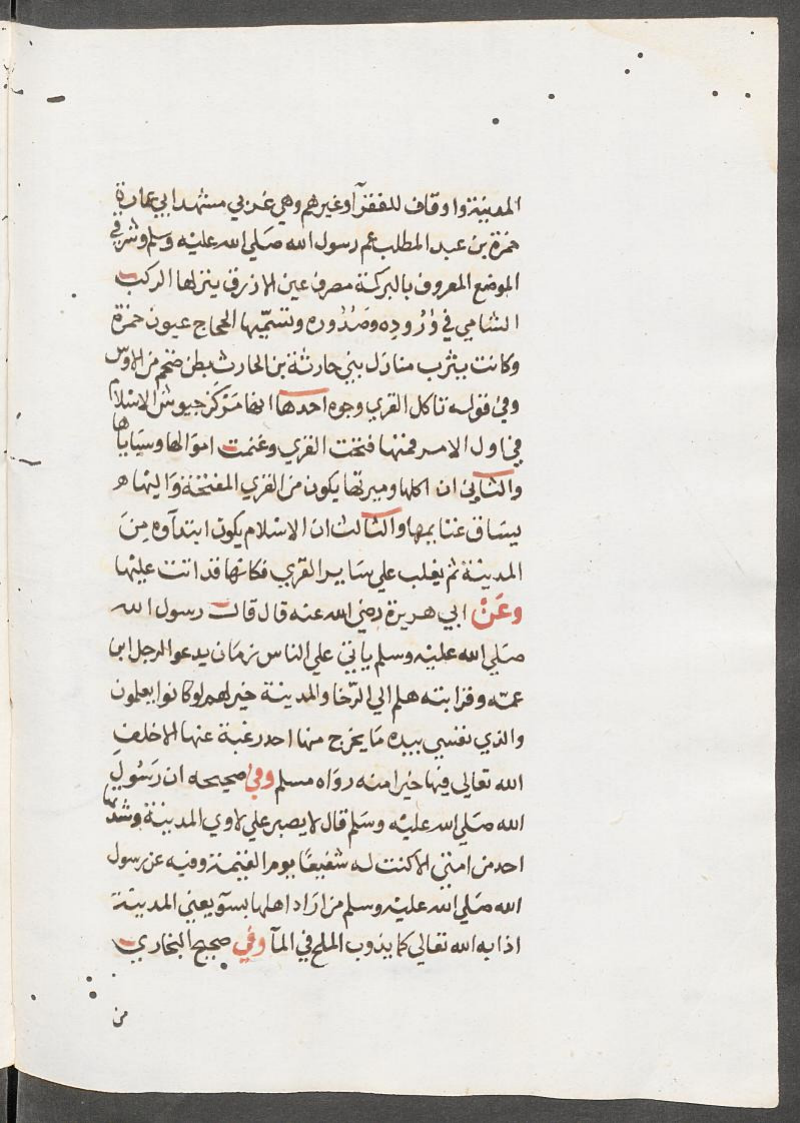 المدينة واوقاف للفقرآ وغيرهم وهي غربي مشهد ابي عمارة
حمزة بن عبد المطلب عم رسول الله صلي الله عليه وسلم وشرقي
الموضع المعروف بالبركة مصرف عين الازرق ينزلها الركب
الشامي في وُرُودِه وصُدُوره وتسمّيها الحجاج عيون حمزة
وكانت يثرب منازل بني حارثة بن الحارث بطن ضخم من الاوس
وفي قوله تاكل القري وجوه احدها انها مَرْكَز جيوش الاسلام
في اول الامر فمنها فتحت القري وغنمت اموالها وسَبَاياها
والثاني ان اكلها وميرتها يكون من القري المفتحة واليها
يسَاق غنايمها والثالث ان الاسْلام يكون ابتدآوه مِنَ
المدينة ثم يغلب علي سَاير القري فكانها قد اتت عليها
وعَنْ ابي هريرة رضي الله عنه قال قال رسول الله
صَلي الله عليه وسلم ياتي علي الناس زمَان يدعوا الرجل ابن
عمّه وقرابته هلم الي الرّخا والمدينة خير لهم لو كانوا يعلمون
والذي نفسي بيده مَا يخرج منها احد رغبة عنها الا خلف
الله تعالي فيها خيرا منه روَاه مسلم وفي صحيحه ان رَسُول
الله صَلي الله عليه وسَلم قال لا يصبر علي لاوي المدينة وشدّتها
احد من امتي الا كنت له شفيعًا يوم القيمة وفيه عن رسول
الله صَلي الله عليه وسلم من ارَاد اهلها بسوٓ يعني المدينة
اذابه الله تعالي كما يذوب الملح في المآ وفي صحيح البخاري
من